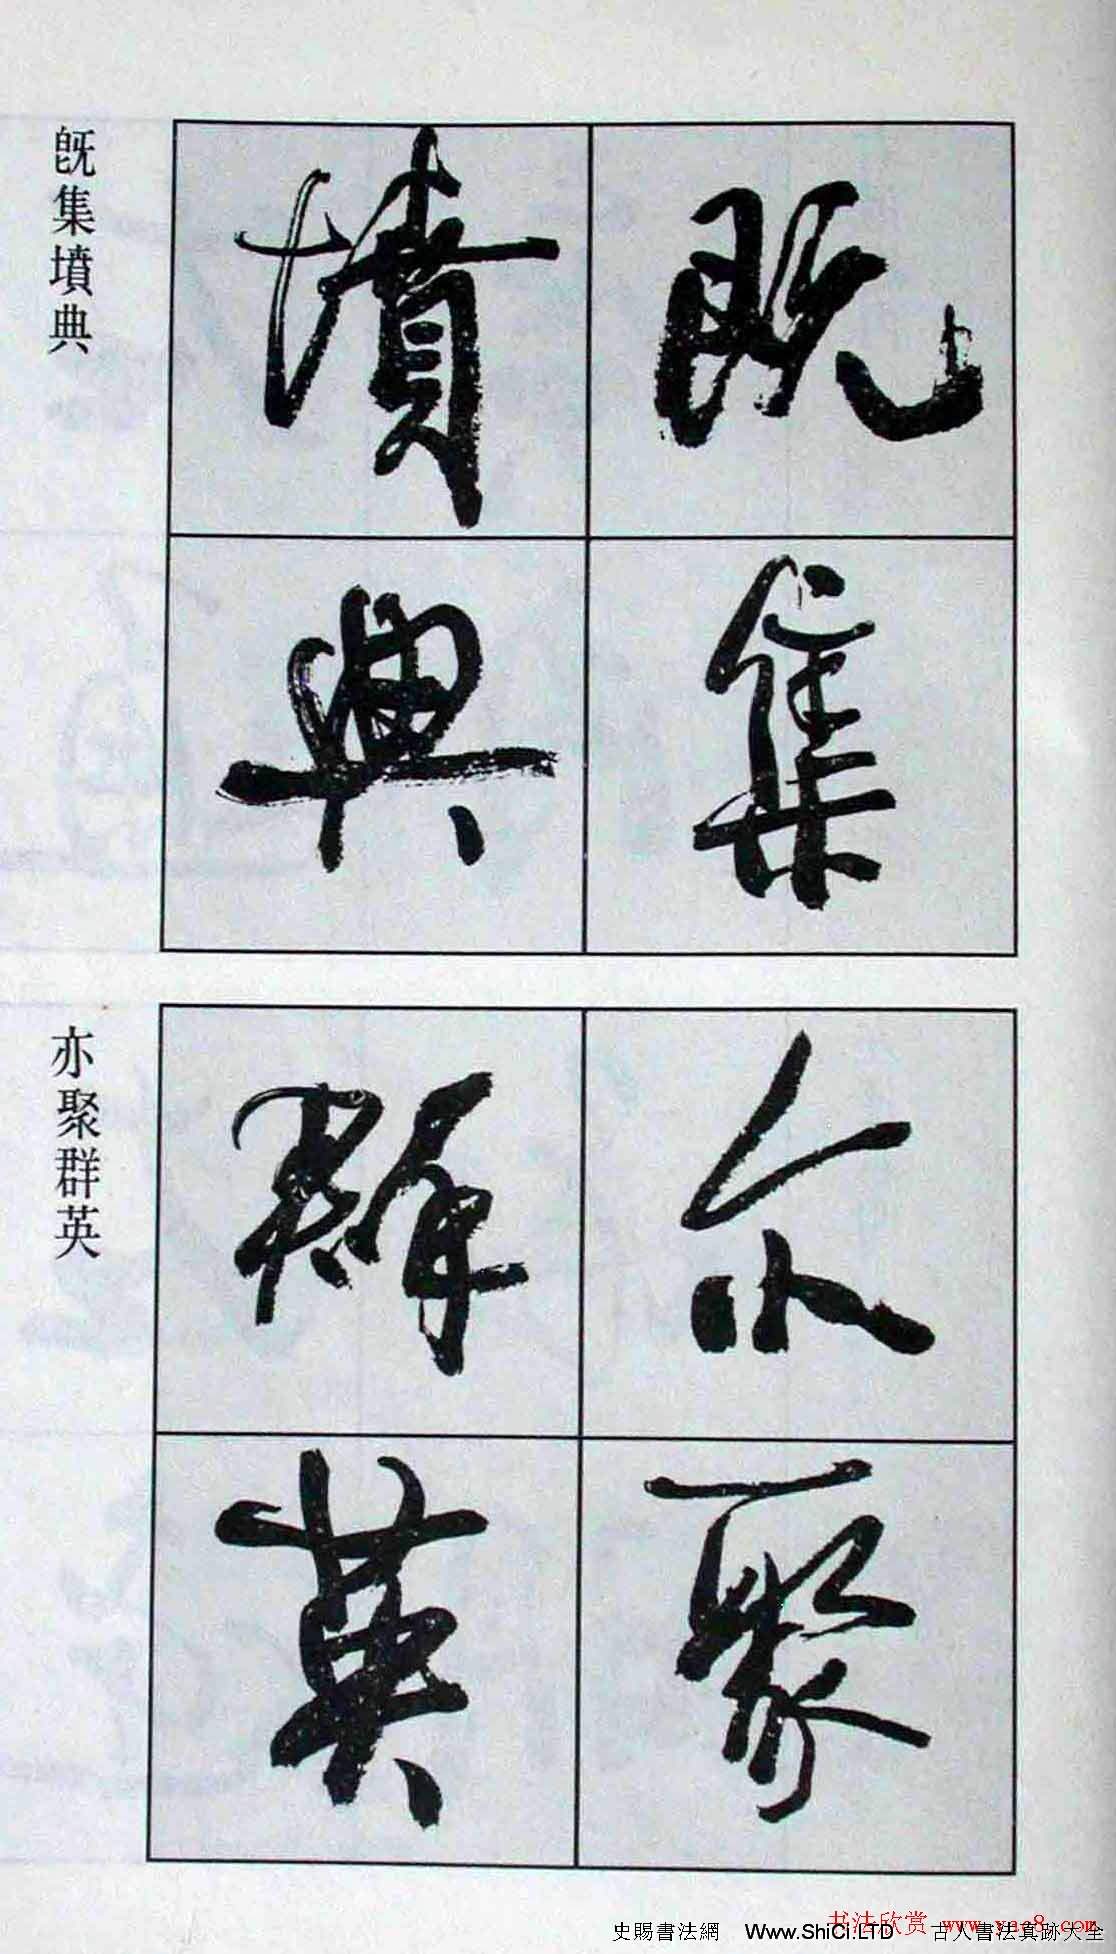 既集墳典
既集墳典
亦聚群英
亦聚群英
书法欣赏 www.yac8.com
史賜書法網 Www.ShiCi.LTD 古人書法真跡大全